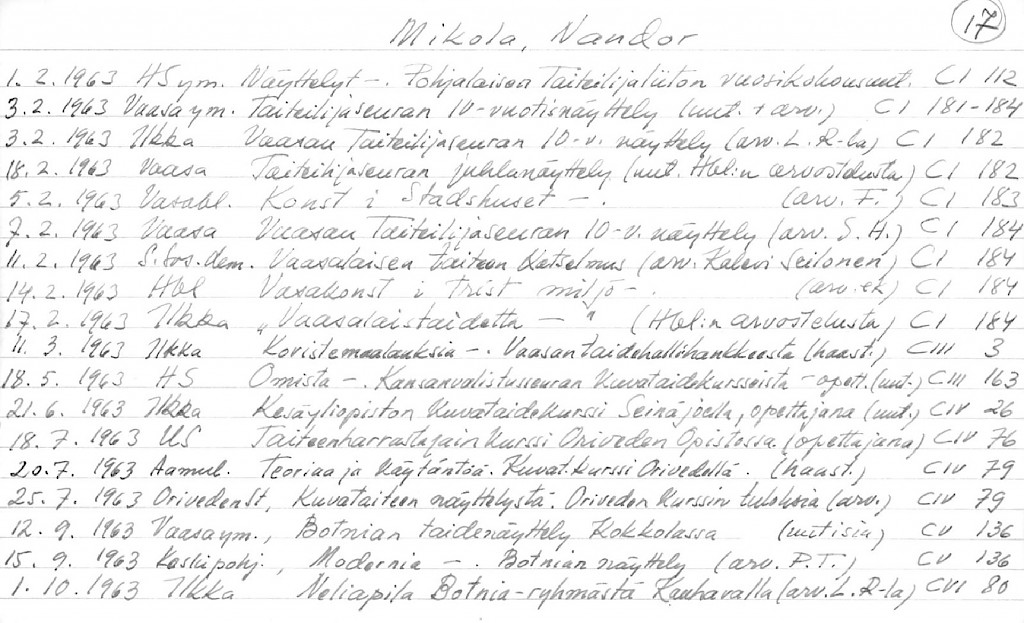 17
Mikola, Nandor
1.2.1963 HS ym. Näyttelyt -. Pohjalaisen Taiteilijaliiton vuosikokousuut. CI 112
3.2.1963 Vaasa ym. Taiteilijaseuran 10-vuotisnäyttely (uut. + arv.) CI 181-184
3.2.1963 Ilkka Vaasan Taiteilijaseuran 10-v. näyttely (arv. L. R-la) CI 182
18.2.1963 Vaasa Taiteilijaseuran juhlanäyttely (uut. Hbl:n arvostelusta) CI 182
5.2.1963 Vasabl. Konst i Stadshuset -. (arv. F.) CI 183
7.2.1963 Vaasa Vaasan Taiteilijaseuran 10-v. näyttely (arv. S.H.) CI 184
11.2.1963 S.Sos.dem. Vaasalaisen taiteen katselmus (arv. Kalevi Seilonen) CI 184
14.2.1963 Hbl Vasakonst i trist miljö -. (arv. ek) CI 184
17.2.1963 Ilkka "Vaasalaistaidetta -" (Hbl:n arvostelusta) CI 184
11.3.1963 Ilkka Koristemaalauksia -. Vaasan taidehallihankkeesta (haast.) CIII 3
18.5.1963 HS Omista -. Kansanvalistusseuran kuvataidekursseista - opett. (uut.) CIII 163
21.6.1963 Ilkka Kesäyliopiston kuvataidekurssi Seinäjoella, opettajana (uut.) CIV 26
18.7.1963 US Taiteenharrastajain kurssi Oriveden Opistossa (opettajana) CIV 76
20.7.1963 Aamul. Teoriaa ja käytäntöä. Kuvat.kurssi Orivedellä. (haast.) CIV 79
25.7.1963 Orivedenst, Kuvataiteen näyttelystä. Oriveden kurssin tuloksia (arv.) CIV 79
12.9.1963 Vaasa ym., Botnian taidenäyttely Kokkolassa (uutisia) CV 136
15.9.1963 Keskipohj., Modernia -. Botnian näyttely (arv. P.T.) CV 136
1.10.1963 Ilkka Neliapila Botnia-ryhmästä Kauhavalla (arv. L. R-la) CVI 80